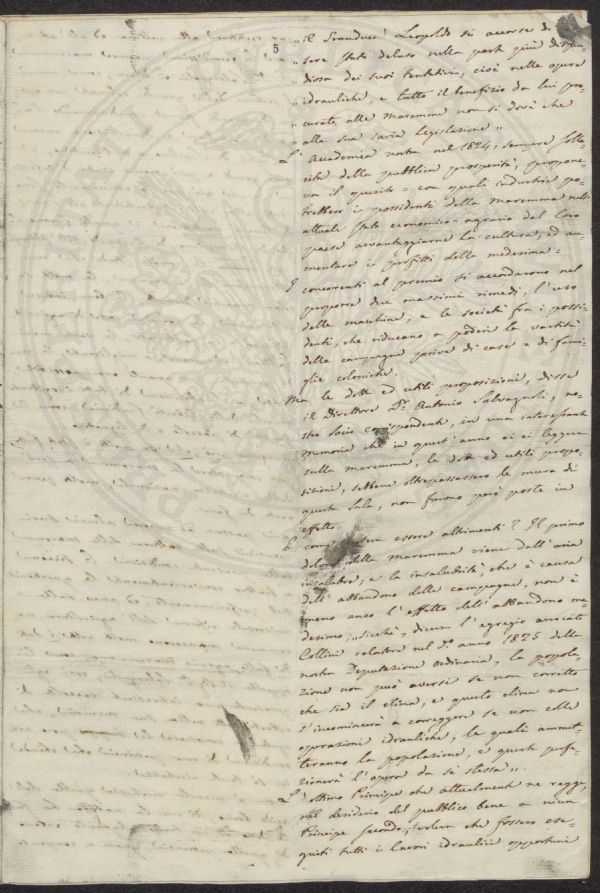 5
„ il Granduca Leopoldo si accorse di es-
„ sere stato deluso nella parte più dispen-
„ diosa dei suoi tentativi, cioè nelle opere
„ idrauliche, e tutto il benefizio da lui pro-
„ curato alle maremme non si dovè che
„ alla sua savia Legislazione „
L' Accademia nostra nel 1824, sempre solle
cita della pubblica prosperità, propone-
va il quesito = con quali industrie po-
trebbero i possidenti della maremma nello
attuale stato economico-agrario del loro
paese avvantaggiarne la cultura, ed au-
mentare i profitti della medesima =
I concorrenti al premio si accordarono nel
proporre due massimi rimedi, l'uso
delle macchine, e le società fra i possi-
denti, che riducano a poderi la vastità
delle campagne prive di case e di fami-
glie coloniche.
Ma le dotte ed utili proposizioni, disse
il Direttore Dr. Antonio Salvagnoli, no-
stro socio corrispondente, in una interessante
memoria che in quest' anno ei ci leggeva
sulla maremma, le dotte ed utili propo-
sizioni, sebbene oltrepassassero le mura di
questa Sala, non furono però poste in
effetto.
E come essere altrimenti? Il primo
dolore della maremma viene dall' aria
insalubre; e la insalubrità, che è causa
dell' abbandono delle campagne, non è
meno anco l'effetto dell' abbandono me-
desimo; „ sicchè, diceva l'egregio avvocato
Collini relatore nel d.o anno 1825 della
nostra Deputazione ordinaria, la popola-
zione non può aversi se non corretto
che sia il clima, e questo clima non
s'incomincerà a correggere se non colle
operazioni idrauliche, le quali ammet-
teranno la popolazione, e questa perfe-
zionerà l'opera da sè stessa „.
L' ottimo Principe che attualmente ne regge,
nel desiderio del pubblico bene a niun
Principe secondo, volem che fossero ese-
guiti tutti i lavori idraulici opportuni